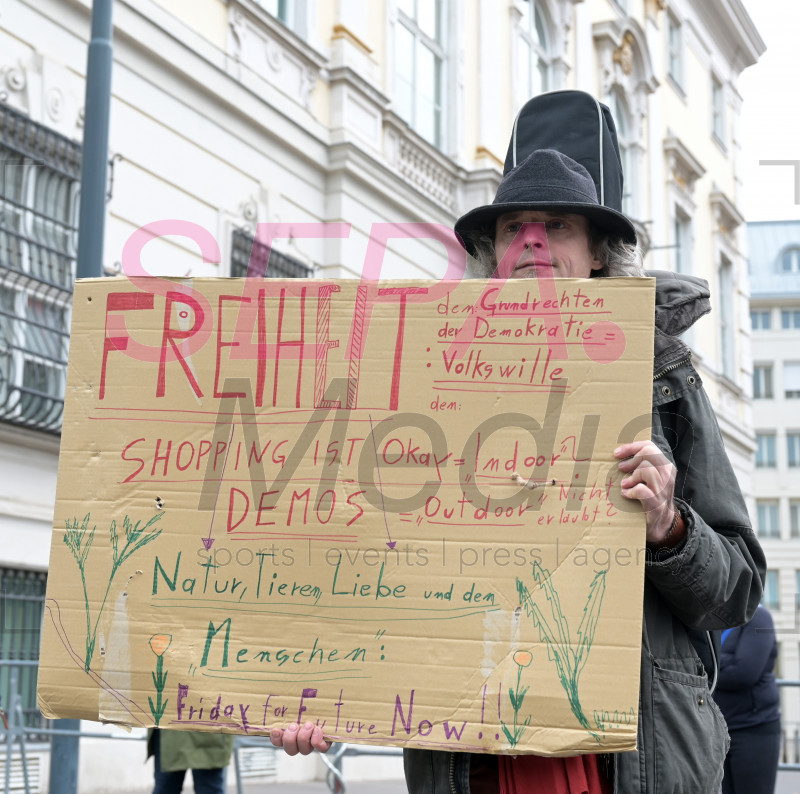 FREIHEIT
den Grundrechten
der Demokratie =
: Volkswille
den:
SHOPPING IST Okay = "Indoor"
DEMOS = "Outdoor" Nicht
erlaubt?
Natur, Tieren, Liebe und den
"Menschen":
Friday for Future Now!!
SEPA.
Media
sports | events | press | agency